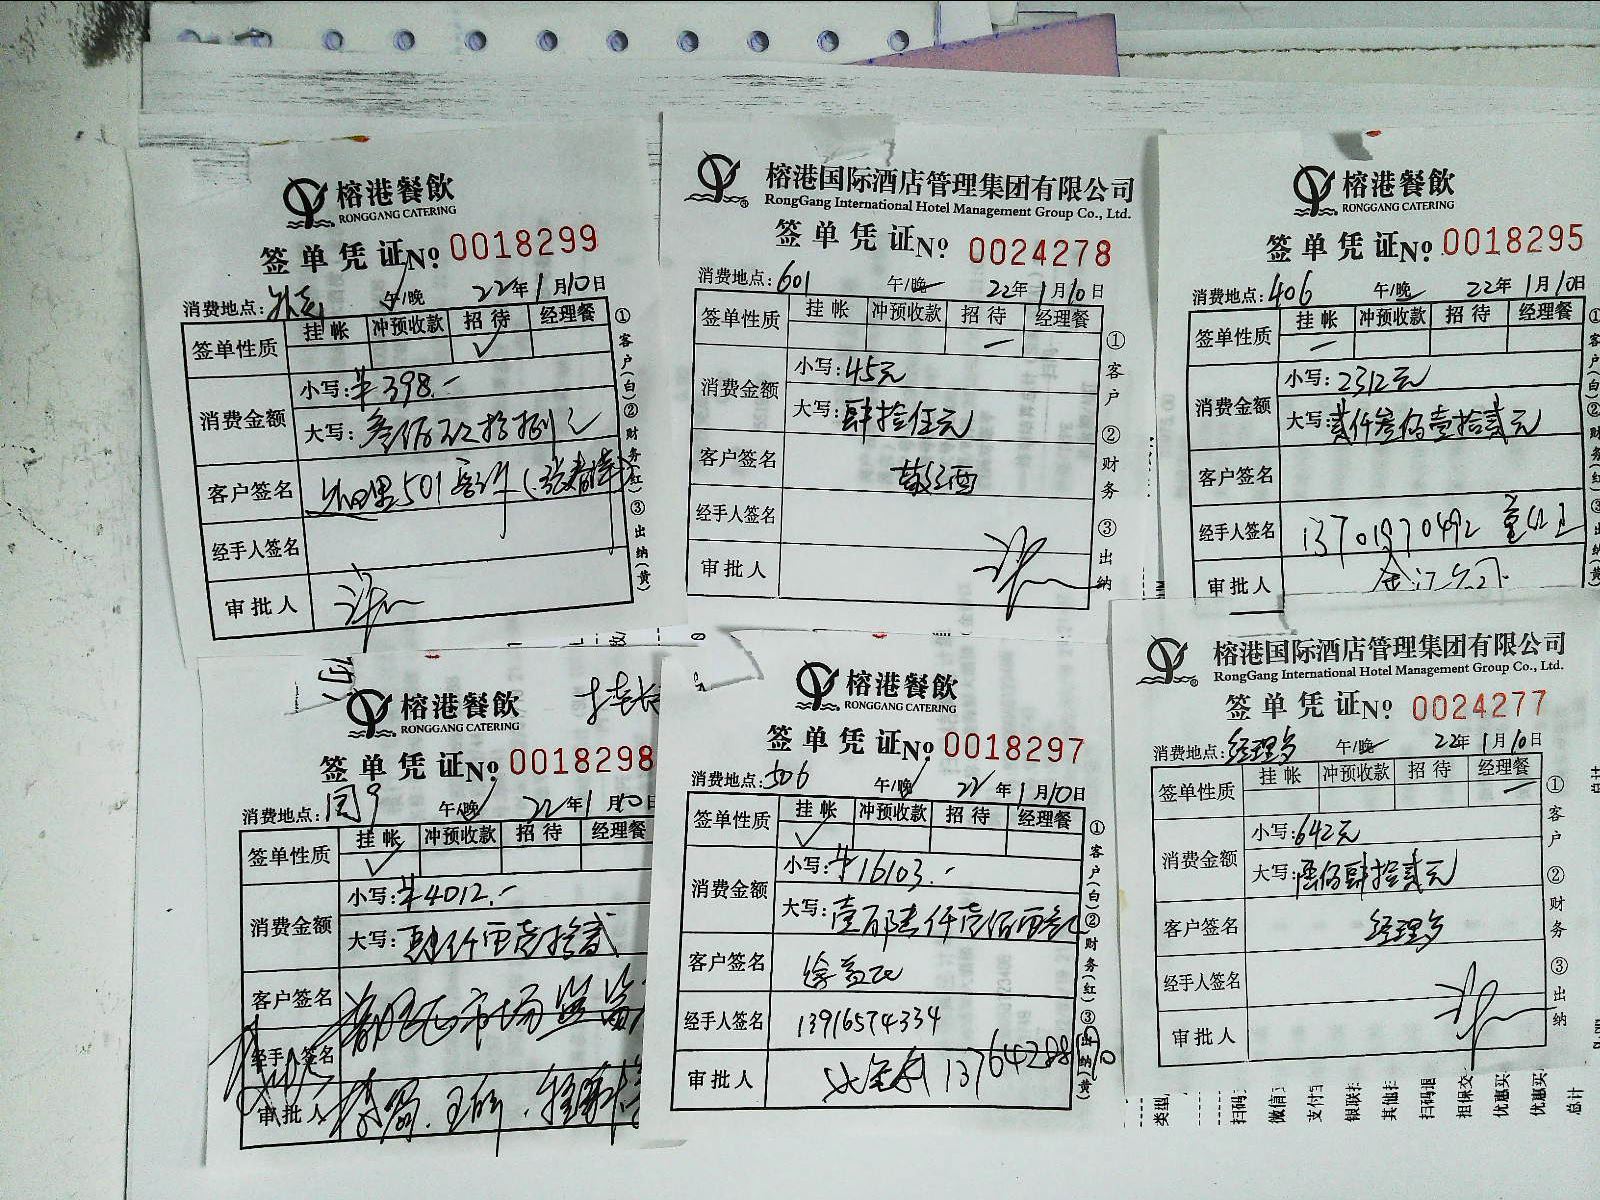 榕港餐飲
RONGGANG CATERING
签单凭证 No. 0018299
消费地点: 午/晚 22年1月10日
签单性质 挂帐 冲预收款 招待 经理餐
✓
消费金额 小写: ¥398.-
大写: 叁佰玖拾捌元
客户签名 501客诉
经手人签名
审批人
①客户(白)②财务(红)③出纳(黄)
榕港国际酒店管理集团有限公司
RongGang International Hotel Management Group Co., Ltd.
签单凭证 No. 0024278
消费地点: 601 午/晚 22年1月10日
签单性质 挂帐 冲预收款 招待 经理餐
消费金额 小写: 45元
大写: 肆拾伍元
客户签名
经手人签名
审批人
①客户 ②财务 ③出纳
榕港餐飲
RONGGANG CATERING
签单凭证 No. 0018295
消费地点: 406 午/晚 22年1月10日
签单性质 挂帐 冲预收款 招待 经理餐
消费金额 小写: 2312元
大写: 贰仟叁佰壹拾贰元
客户签名
经手人签名 13701970492
审批人
榕港餐飲
RONGGANG CATERING
签单凭证 No. 0018298
消费地点: 午/晚 22年1月10日
签单性质 挂帐 冲预收款 招待 经理餐
✓
消费金额 小写: ¥4012.-
大写: 肆仟零壹拾贰
客户签名 市场监
经手人签名
审批人
榕港餐飲
RONGGANG CATERING
签单凭证 No. 0018297
消费地点: 506 午/晚 22年1月10日
签单性质 挂帐 冲预收款 招待 经理餐
✓
消费金额 小写: ¥16103.-
大写: 壹万陆仟壹佰零叁元
客户签名
经手人签名 13916574334
审批人
①客户(白)②财务(红)③出纳(黄)
榕港国际酒店管理集团有限公司
RongGang International Hotel Management Group Co., Ltd.
签单凭证 No. 0024277
消费地点: 经理 午/晚 22年1月10日
签单性质 挂帐 冲预收款 招待 经理餐
消费金额 小写: 642元
大写: 陆佰肆拾贰元
客户签名 经理
经手人签名
审批人
①客户 ②财务 ③出纳
类型
扫码
微信
支付
银联
其他
扫码退
担保交
优惠买
优惠买
总计